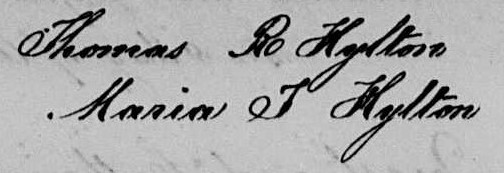 Thomas R Hylton
Maria T Hylton